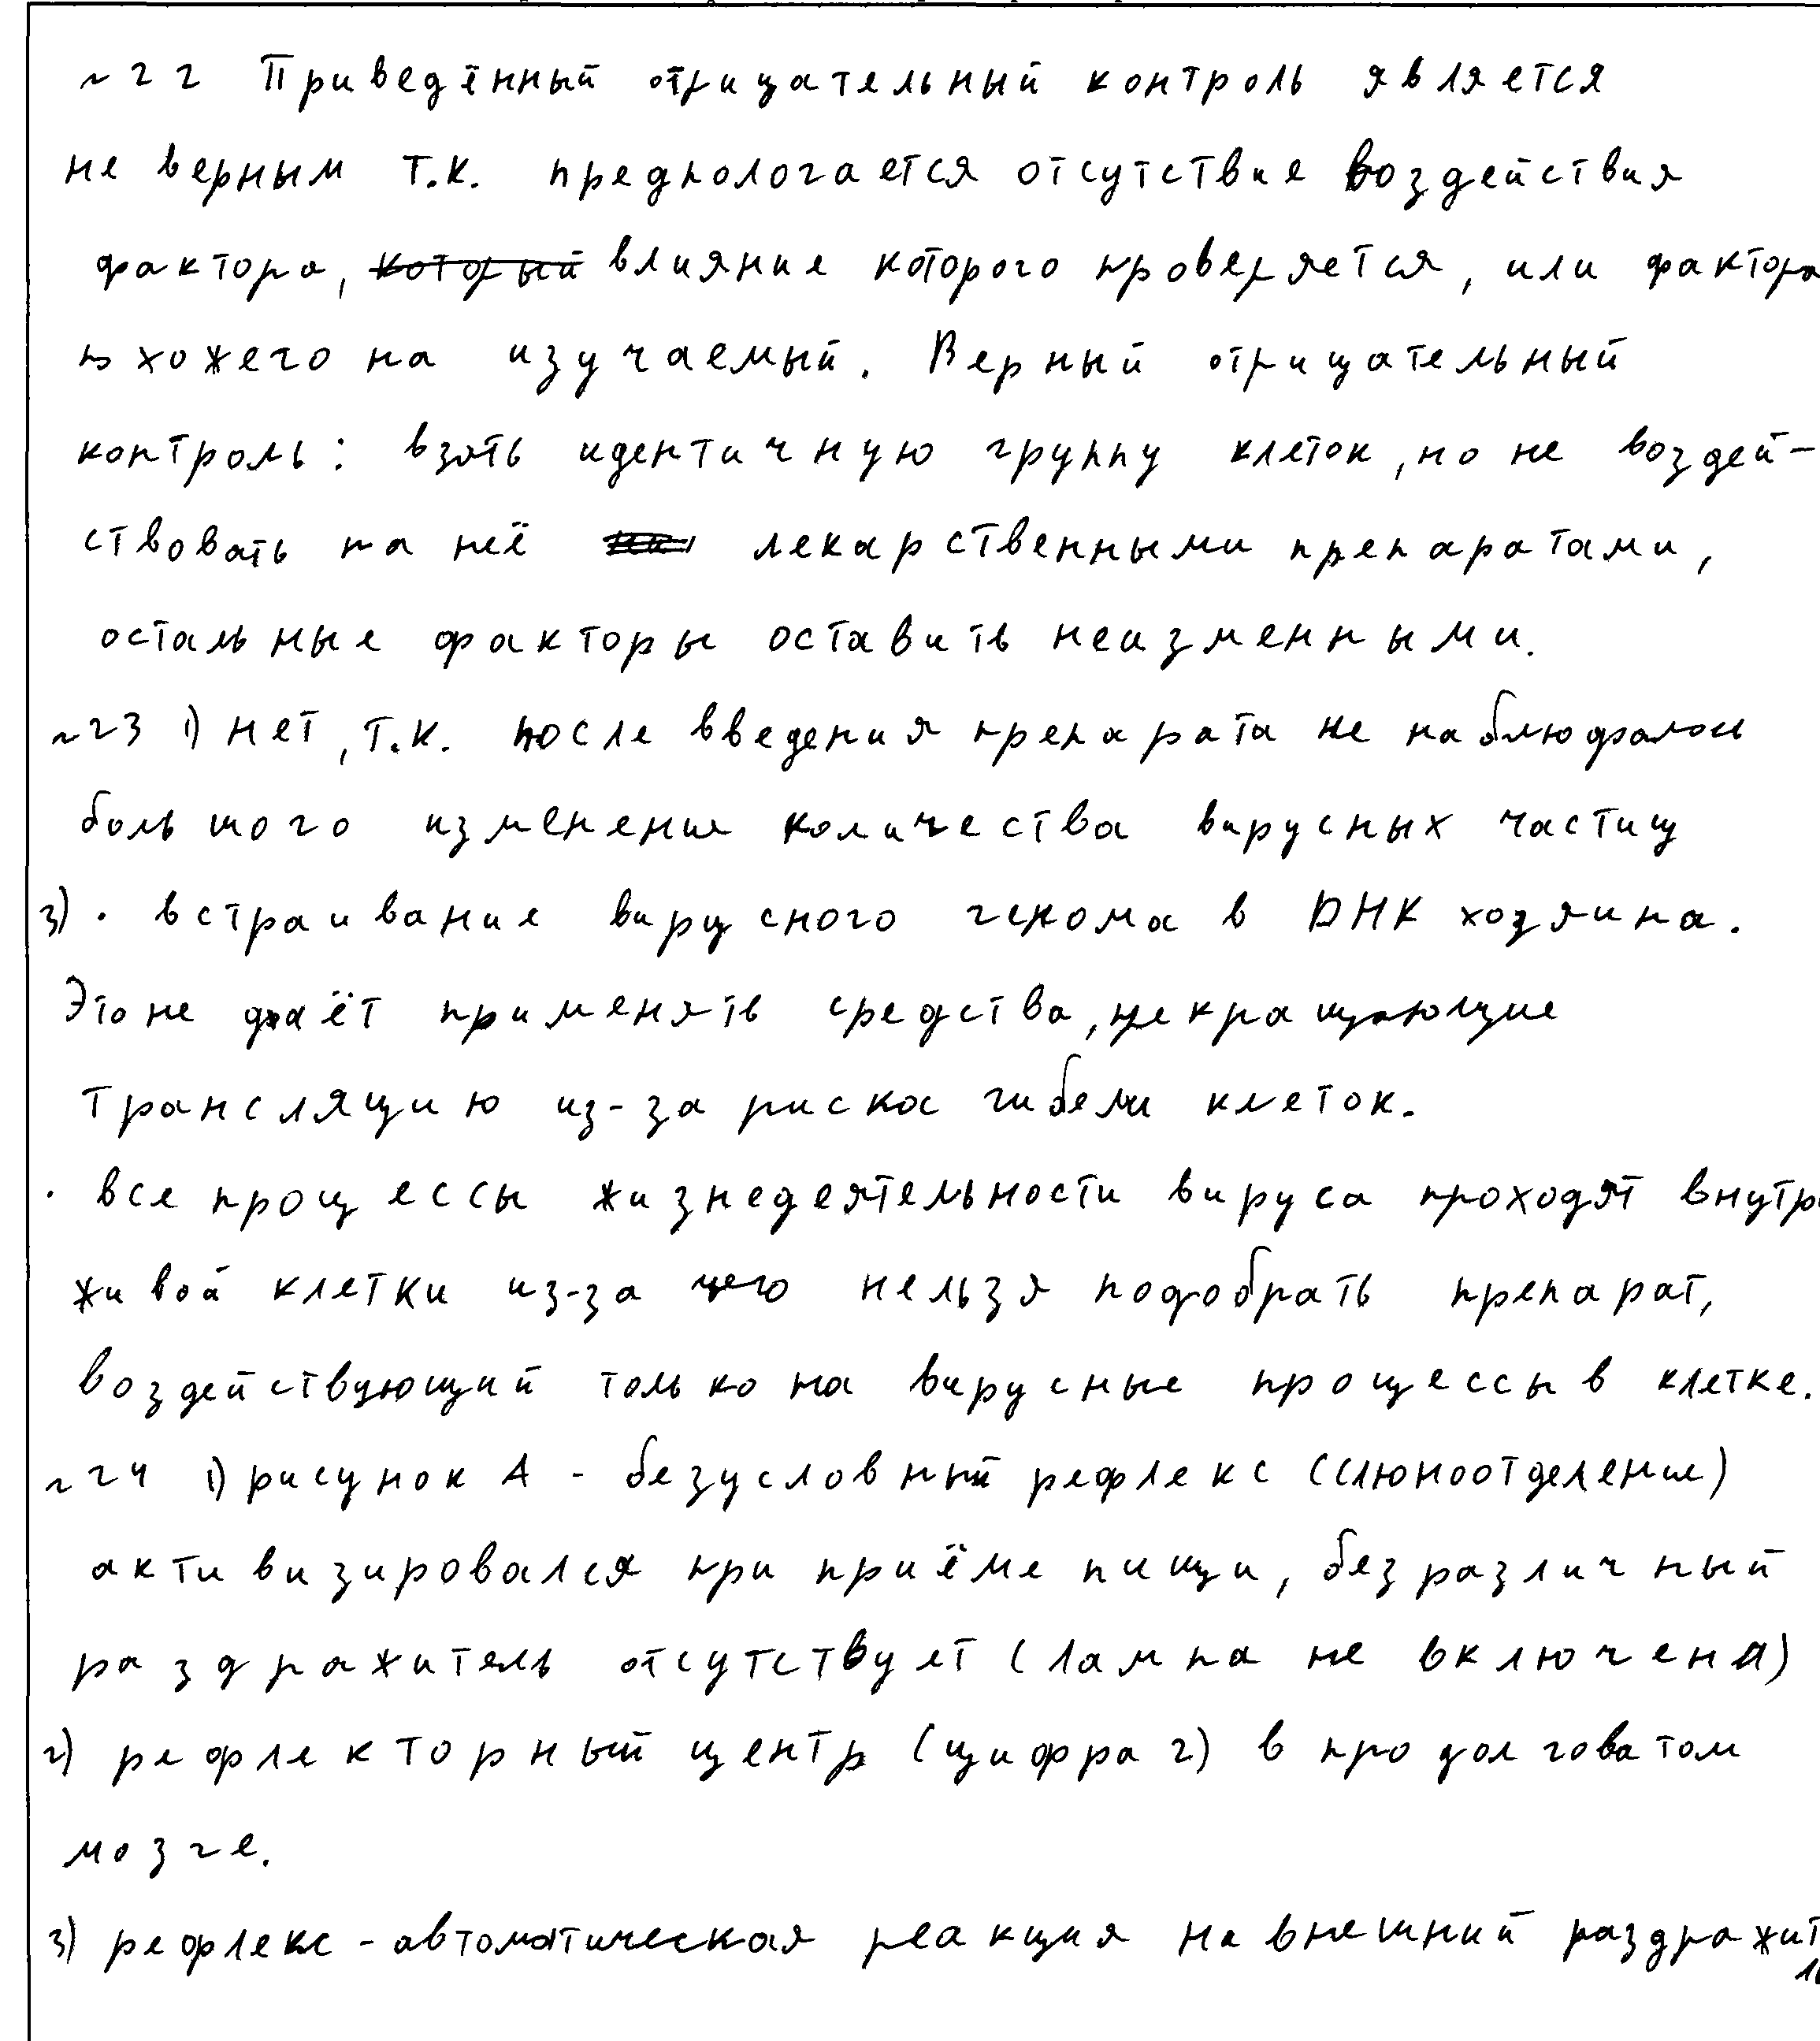 ~22 Приведённый отрицательный контроль является
не верным т.к. предпологается отсутствие воздействия
фактора, который влияние которого проверяется, или фактора
похожего на изучаемый. Верный отрицательный
контроль: взять идентичную группу клеток, но не воздей-
ствовать на неё лекарственными препаратами,
остальные факторы оставить неизменными.
~23 1) нет, т.к. после введения препарата не наблюдалось
большого изменение количества вирусных частиц
3) · встраивание вирусного генома в ДНК хозяина.
Это не даёт применять средства, прекращающие
трансляцию из-за риска гибели клеток.
· все процессы жизнедеятельности вируса проходят внутри
живой клетки из-за чего нельзя подобрать препарат,
воздействующий только на вирусные процессы в клетке.
~24 1) рисунок А - безусловный рефлекс (слюноотделение)
активизировался при приёме пищи, безразличный
раздражитель отсутствует (лампа не включена)
2) рефлекторный центр (цифра 2) в продолговатом
мозге.
3) рефлекс - автоматическая реакция на внешний раздражит